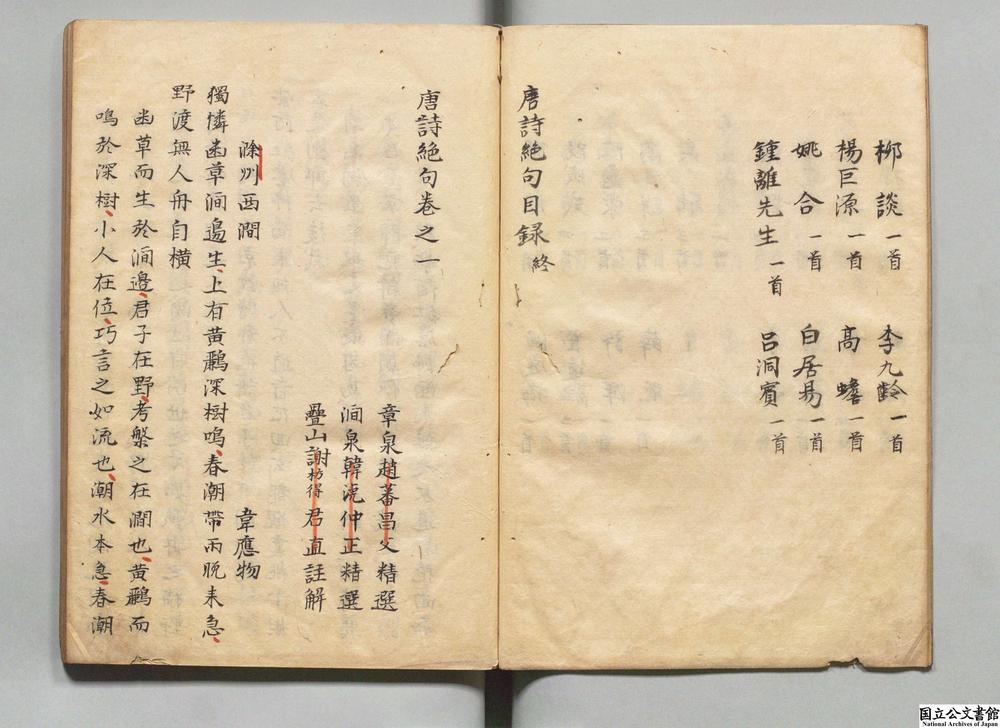 柳談一首 李九齡一首
楊巨源一首 高蟾一首
姚合一首 白居易一首
鍾離先生一首 呂洞賓一首
唐詩絶句目録終
唐詩絶句卷之一
章泉趙蕃昌父精選
澗泉韓淲仲正精選
疊山謝枋得君直註解
滁州西澗 韋應物
獨憐幽草澗邊生、上有黃鸝深樹鳴、春潮帶雨晚来急、
野渡無人舟自橫
幽草而生於澗邊、君子在野、考槃之在澗也、黃鸝而
鳴於深樹、小人在位、巧言之如流也、潮水本急、春潮
国立公文書館
National Archives of Japan